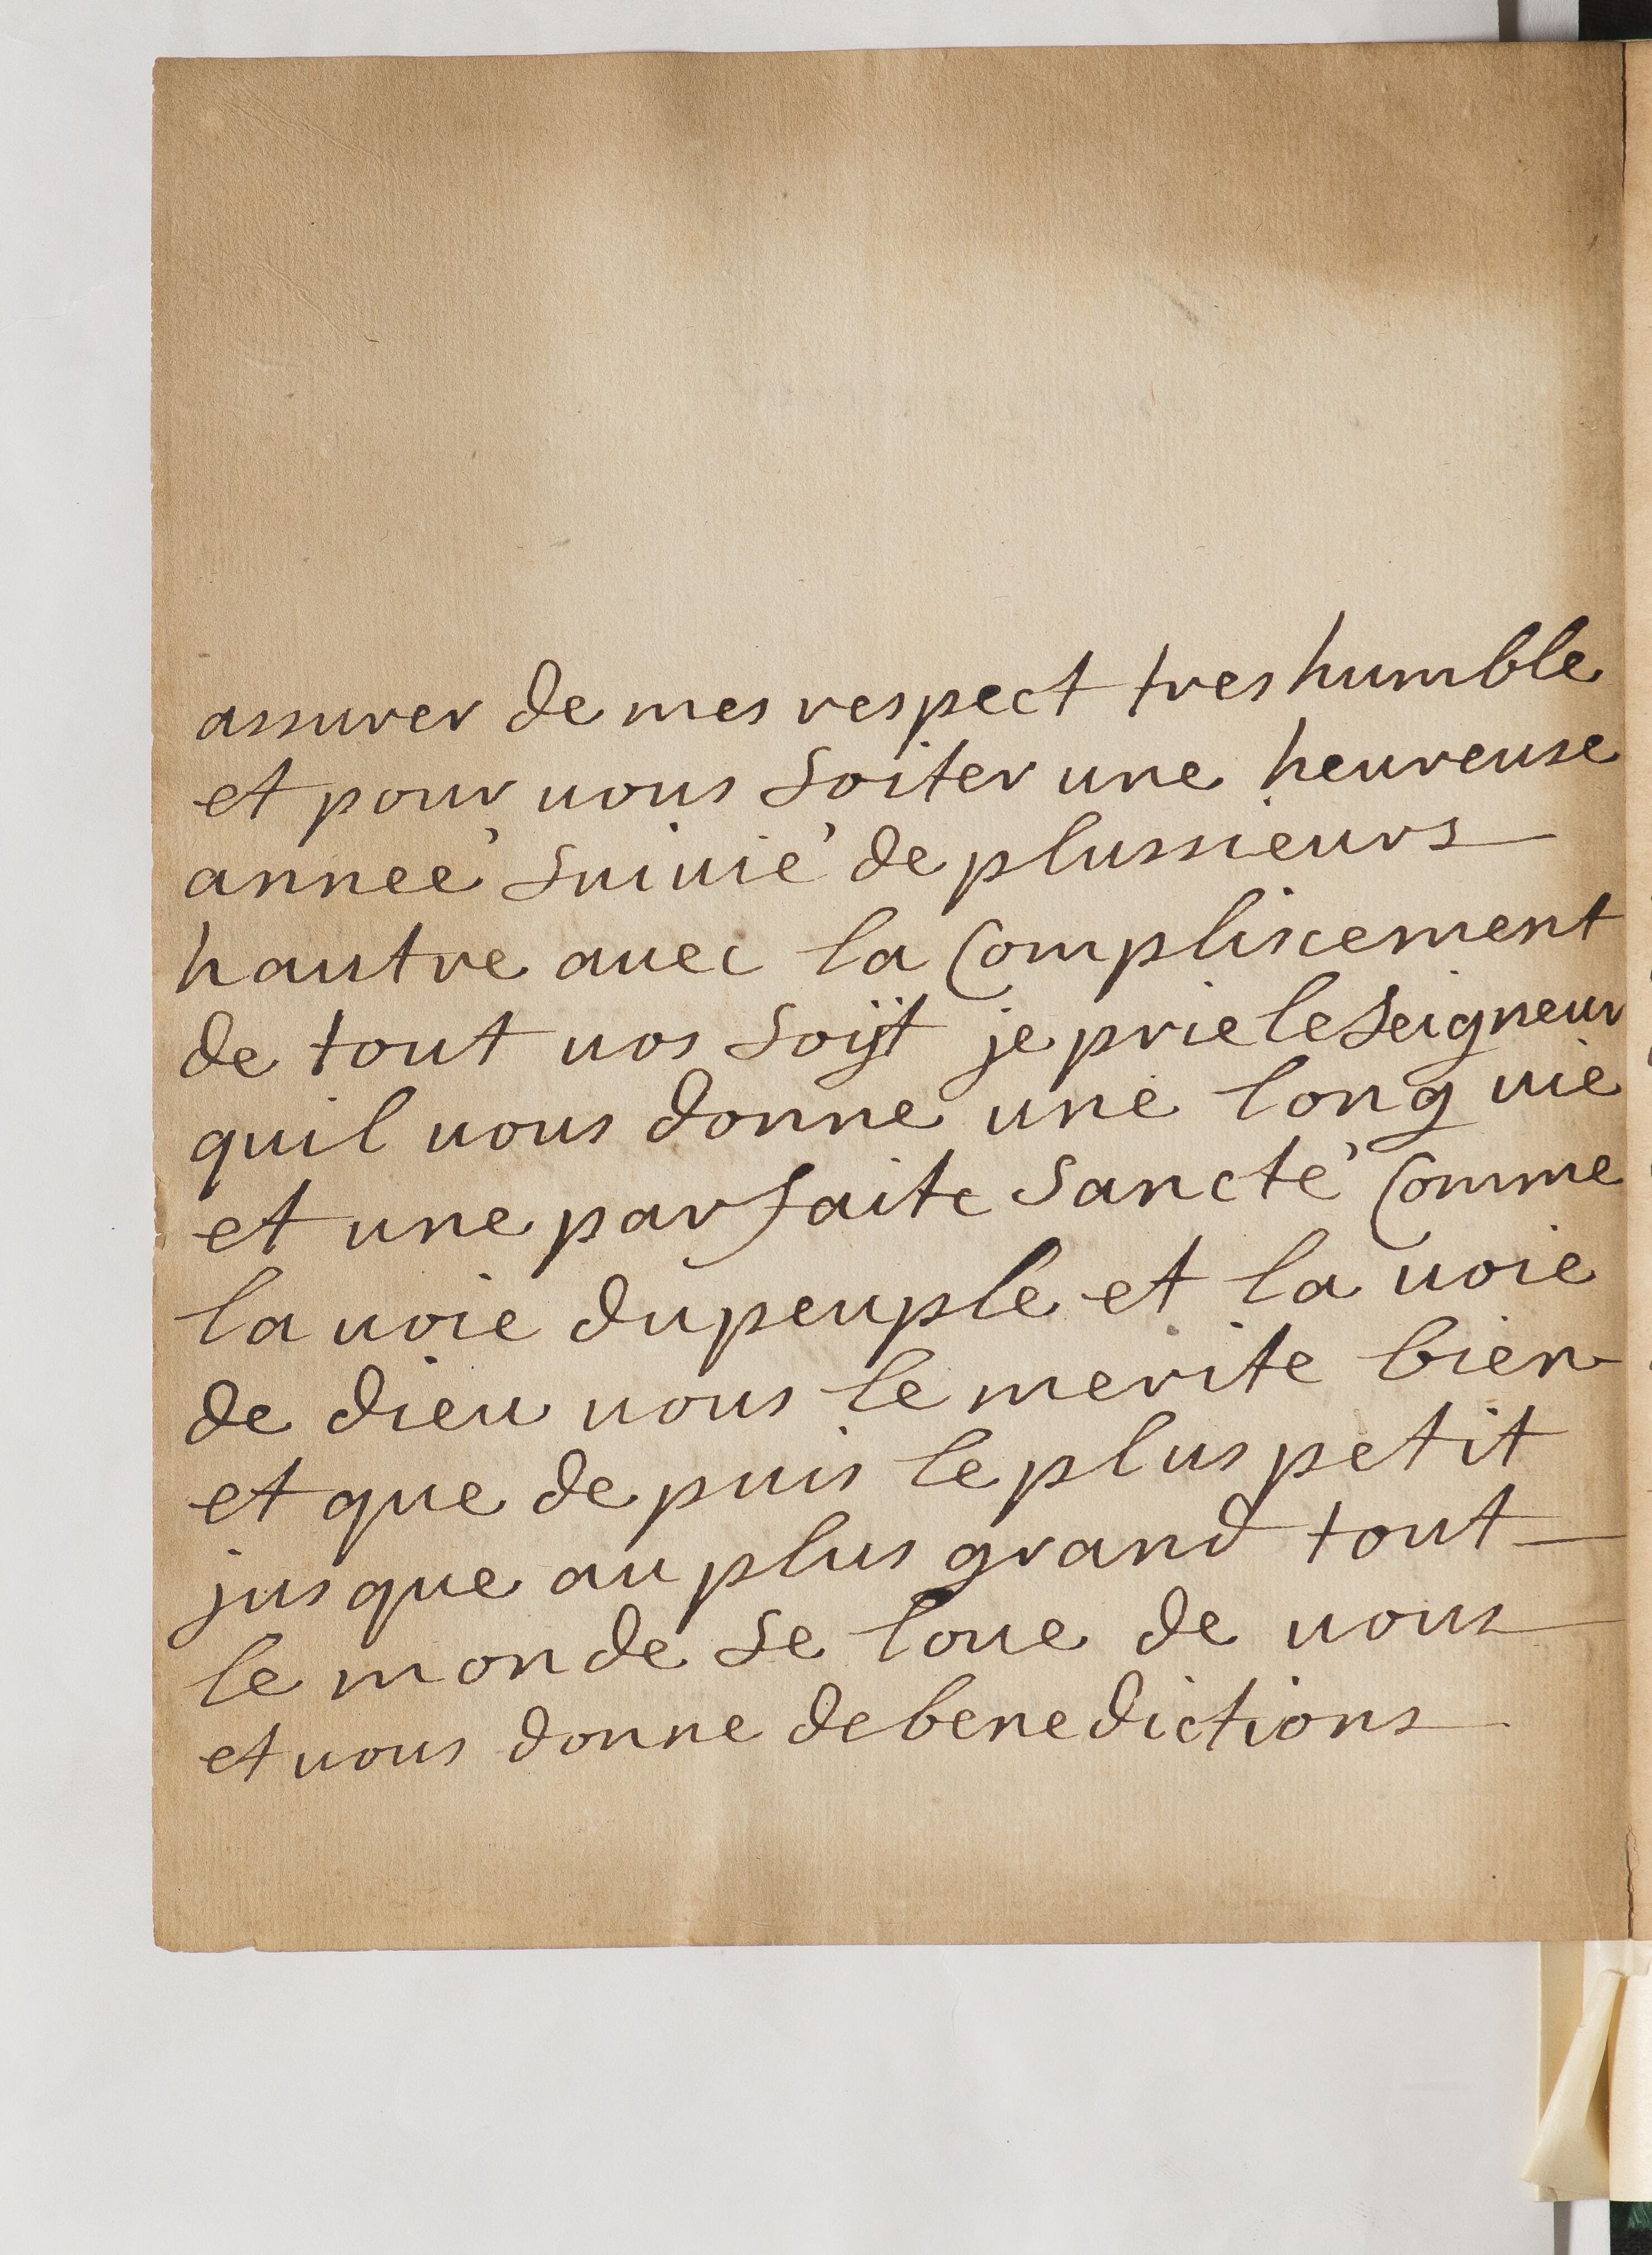 assurer de mes respect tres humble
et pour uous soiter une heureuse
anneé suiuié de plussieurs
hautre auec la Compliscement
de tout uos soijt je prie le seigneur
quil uous donne une long uie
et une parfaite sancté Comme
la uoie du peuple et la uoie
de dieu uous le merite bien
et que de puis le plus petit
jusque au plus grand tout
le monde se loue de uous
et uous donne de benedictions